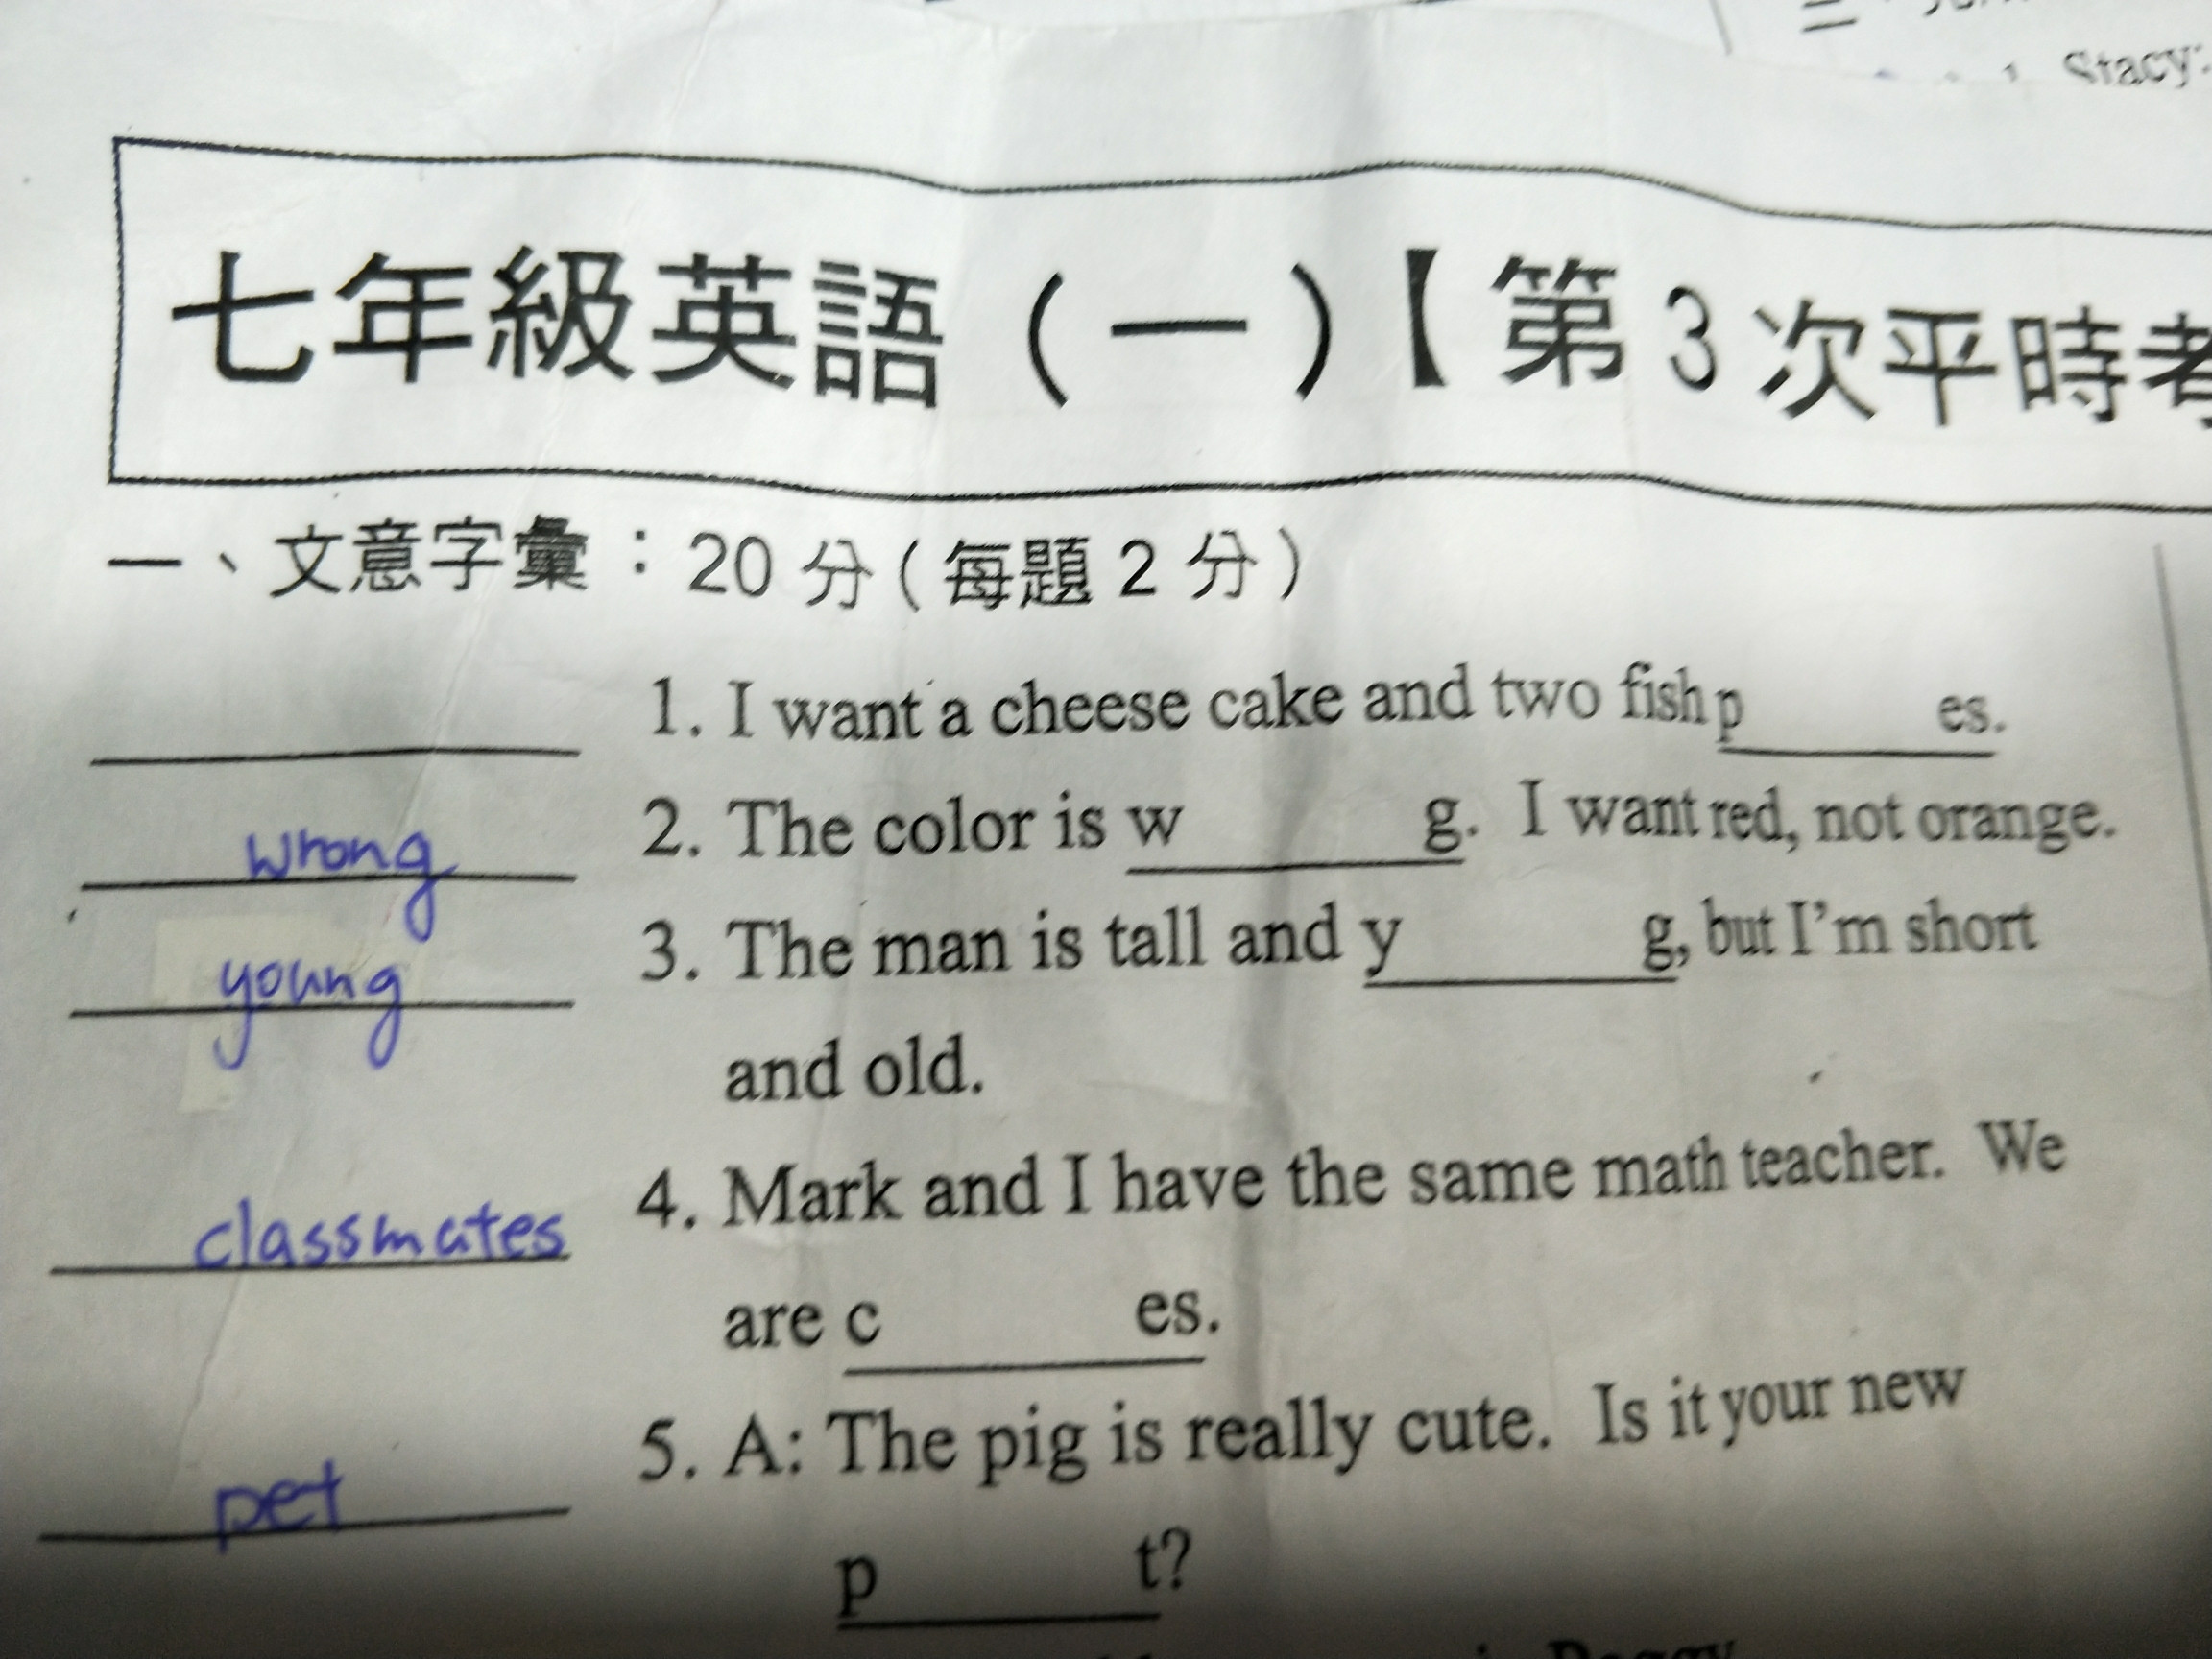 Stacy:
七年級英語（一）【第3次平時考
一、文意字彙：20分（每題2分）
1. I want a cheese cake and two fish p____es.
wrong 2. The color is w____g. I want red, not orange.
young 3. The man is tall and y____g, but I'm short
and old.
classmates 4. Mark and I have the same math teacher. We
are c____es.
pet 5. A: The pig is really cute. Is it your new
p____t?